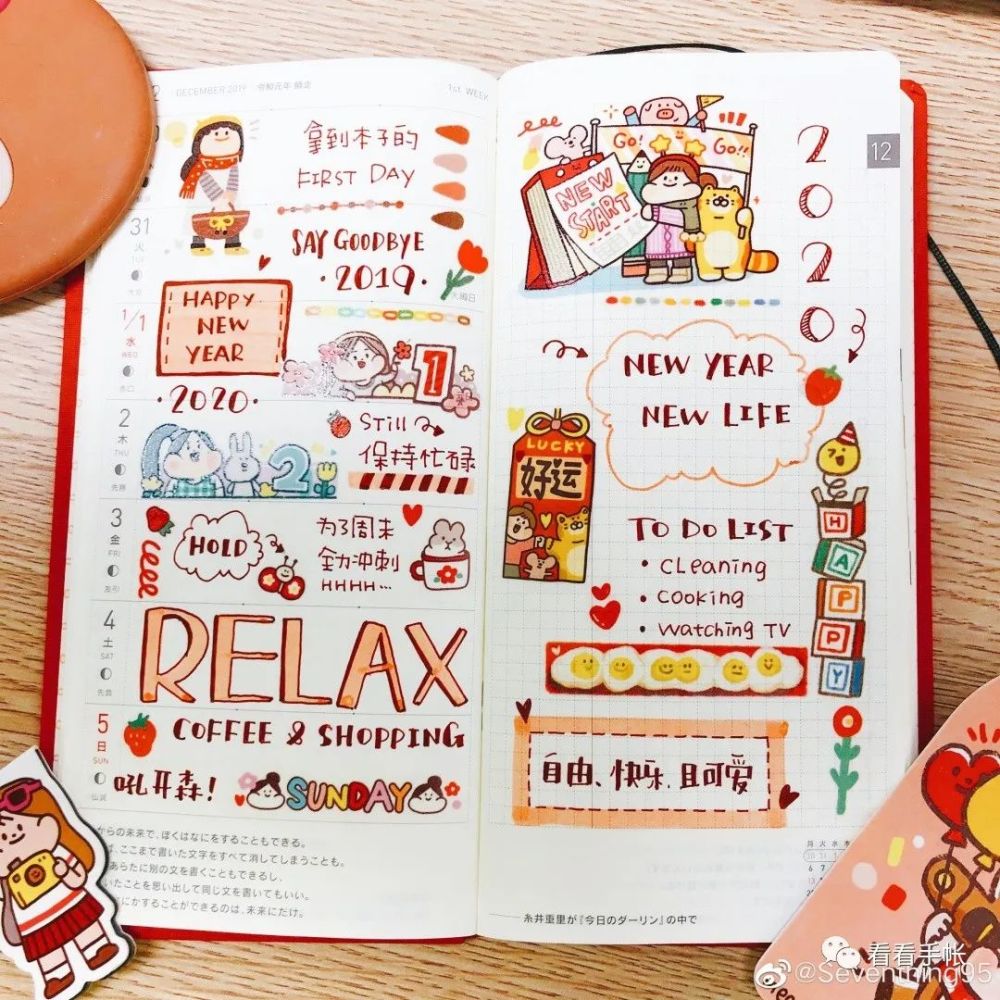 DECEMBER 2019 令和元年 師走
1st WEEK
拿到本子的
FIRST DAY
31
火
TUE
SAY GOODBYE
·2019·
大晦日
HAPPY
NEW
YEAR
1/1
水
WED
1
·2020·
2
木
THU
先勝
2
STILL
保持忙碌
3
金
FRI
友引
HOLD
为了周末
全力冲刺
HHHH...
4
土
SAT
先負
RELAX
5
日
SUN
仏滅
COFFEE & SHOPPING
吼开森!
SUNDAY
からの未来で、ぼくはなにをすることもできる。
、ここまで書いた文字をすべて消してしまうことも。
あらたに別の文を書くこともできるし、
いたことを思い出して同じ文を書いてもいい。
にかすることができるのは、未来にだけ。
12
GO!
GO!!
NEW
START
2020
NEW YEAR
NEW LIFE
LUCKY
好运
TO DO LIST
• CLeaning
• COOKing
• Watching TV
HAPPY
自由、快乐、且可爱
月 火 水 木
糸井重里が『今日のダーリン』の中で
看看手帐
@Seventning95